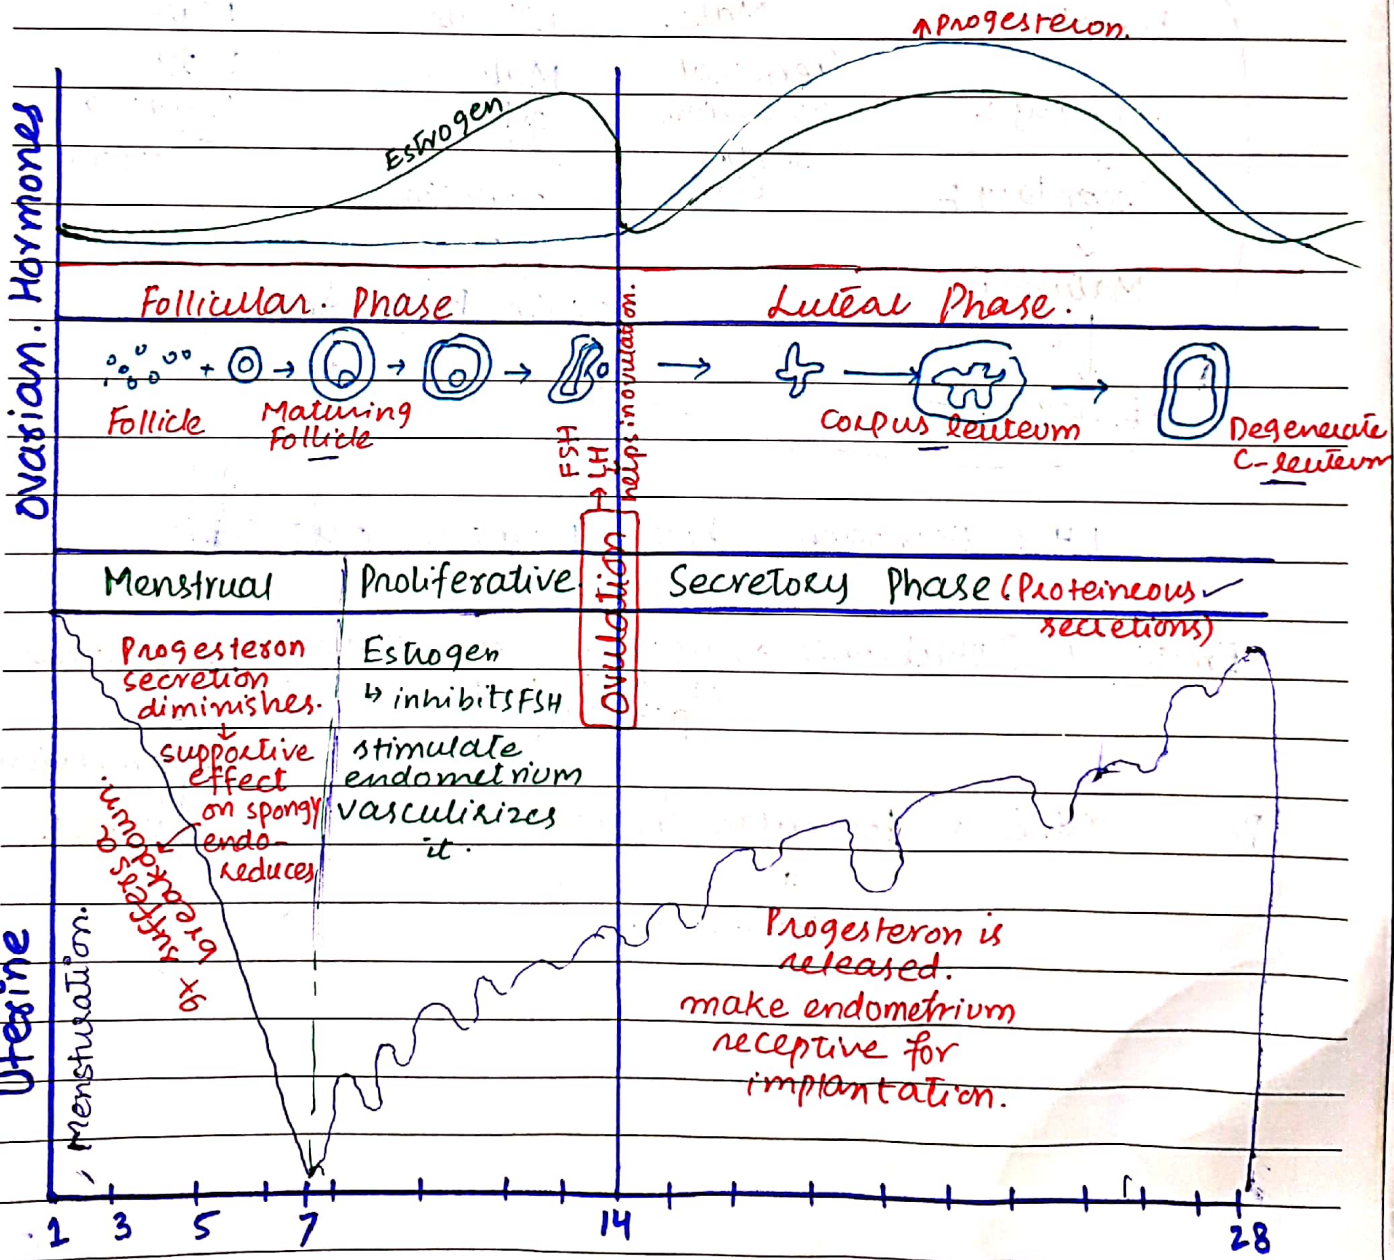 ↑Progesteron.
Estrogen
Ovarian. Hormones
Follicular. Phase
Luteal Phase.
Follicle
Maturing
Follicle
FSH
→ LH
helps in ovulation.
Corpus leuteum
Degenerate
C-leuteum
Ovulation
Menstrual
Proliferative
Secretory Phase (Proteineous
secretions)
Progesteron
secretion
diminishes.
supportive
effect
on spongy
endo-
reduces
& suffers
breakdown.
Estrogen
↳ inhibits FSH
stimulate
endometrium
vasculirizes
it.
Progesteron is
released.
make endometrium
receptive for
implantation.
Uterine
Mensturation.
1 3 5 7 14 28